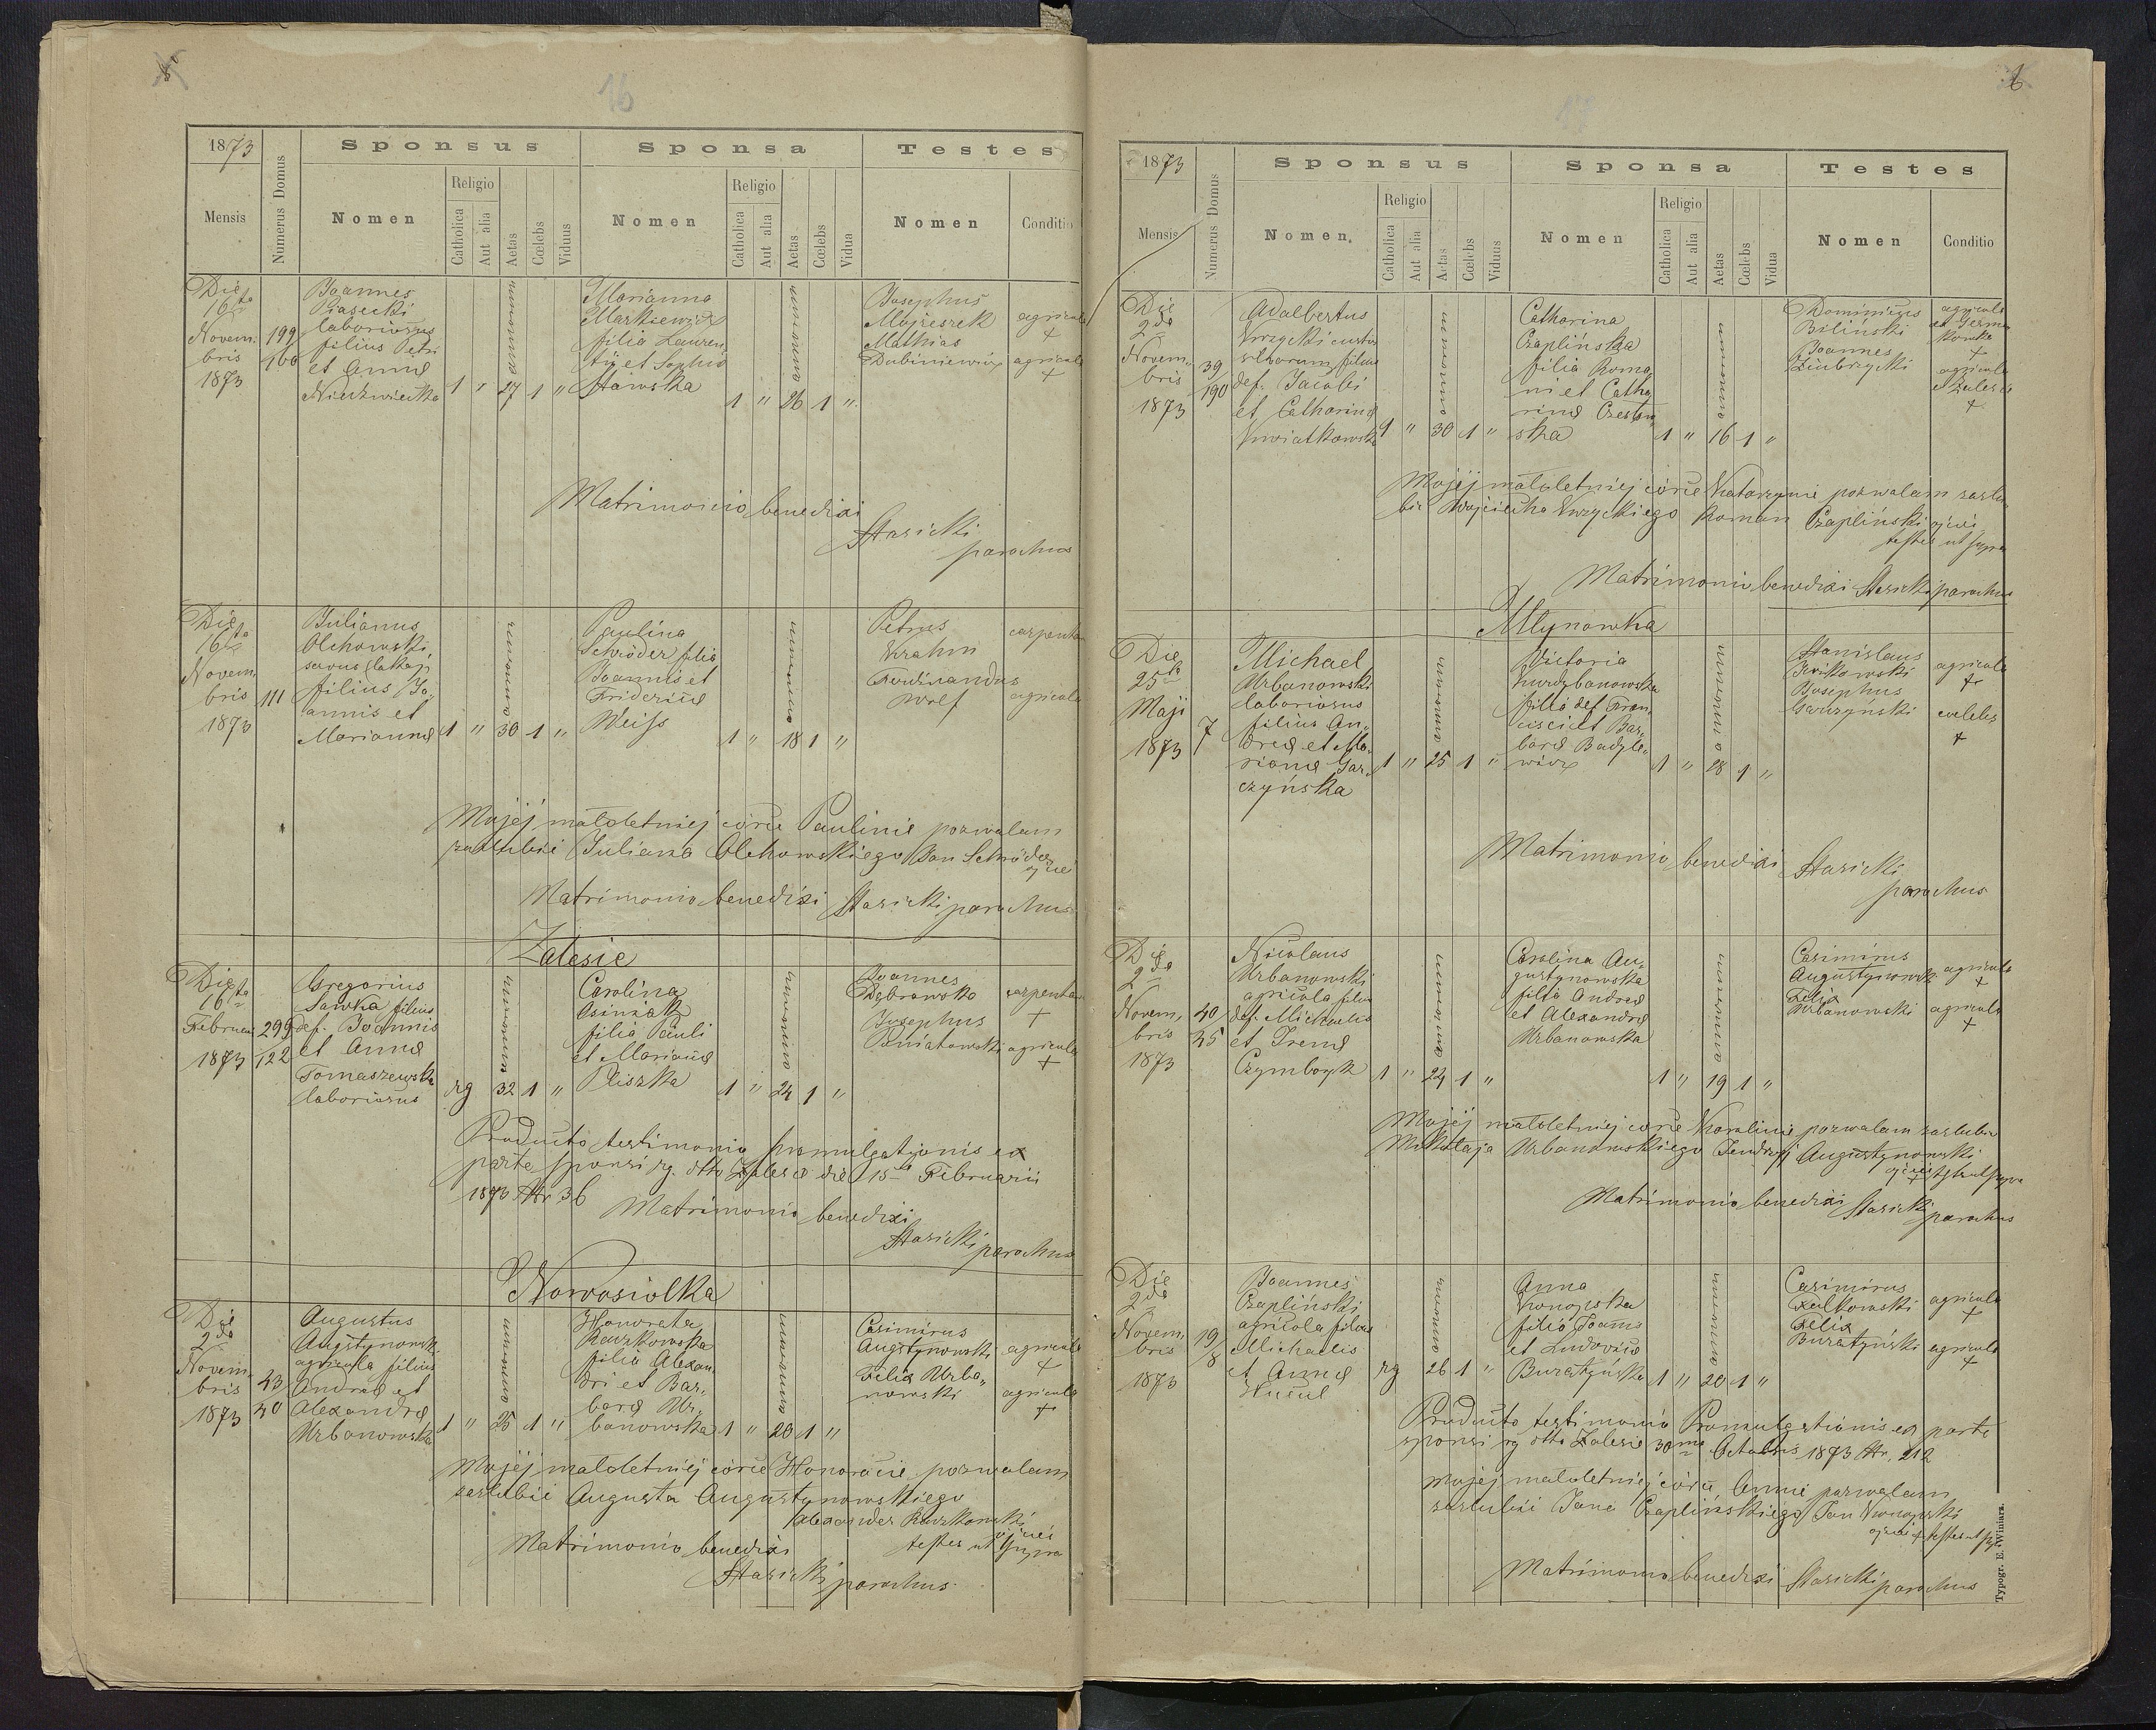 16
1873
Sponsus
Sponsa
Testes
Mensis
Numerus Domus
Nomen
Religio
Catholica
Aut alia
Aetas
Cœlebs
Viduus
Nomen
Religio
Catholica
Aut alia
Aetas
Cœlebs
Vidua
Nomen
Conditio
Die
16ta
Novem.
bris
1873
199
166
Joannes
Piasecki
laboriosus
filius Petri
et Annæ
1 " 27 1 "
annorum
Marianna
Markiewicz
filia Lauren
tii et Sophiæ
1 " 26 1 "
annorum
Josephus
Mathias
Dubiniewicz
agricola
+
agricola
+
Matrimonio benedixi
Stasicki
parochus
Die
16ta
Novem.
bris
1873
111
Julianus
Olchowski
servus
filius Jo„
annis et
Mariannæ
1 " 30 1 "
annorum
Paulina
Schröder filia
Joannis et
Fridericæ
Weiss
1 " 18 1 "
annorum
Petrus
Krahn
Ferdinandus
Wolf
carpenta
agricola
Mojéj małoletniej córce Paulinie pozwalam
zaślubić Juliana Olchowskiego Jan Schröder
ojciec
Matrimonio benedixi Stasicki parochus
Zalesie
Die
16ta
Februarii
1873
299
122
Gregorius
Sawka filius
def. Joannis
et Annæ
Tomaszewska
laboriosus
rg 32 1 "
annorum
Carolina
filia Pauli
et Mariannæ
Pliszka
1 " 24 1 "
annorum
Joannes
Dąbrowska
Josephus
Poniatowski
carpenta
+
agricola
+
Producto testimonio promulgationis ex
parte sponsi rg. dtto Zalesie die 15ta Februarii
1873 Nr 36
Matrimonio benedixi
Stasicki parochus
Nowosiolka
Die
2da
Novem.
bris
1873
43
40
Augustus
Augstynowsk
agricola filius
Andreæ et
Alexandræ
Urbanowska
1 " 25 1 "
annorum
Honorata
Raczkowska
filia Alexan
dri et Bar„
baræ Ur„
banowska
1 " 20 1 "
annorum
Casimirus
Augstynowski
Felix Urba„
nowski
agricola
+
agricola
+
Mojéj małoletniej córce Honoracie pozwalam
zaślubić Augusta Augustynowskiego
Alexander Raczkowski
ojciec
testes ut supra
Matrimonio benedixi
Stasicki parochus.
6
1873
Sponsus
Sponsa
Testes
Mensis
Numerus Domus
Nomen.
Religio
Catholica
Aut alia
Aetas
Cœlebs
Viduus
Nomen
Religio
Catholica
Aut alia
Aetas
Cœlebs
Vidua
Nomen
Conditio
Die
2da
Novem.
bris
1873
39
190
Adalbertus
Krzycki custos
silvarum filius
def. Jacobi
et Catharinæ
Kwiatkowska
1 " 30 1 "
annorum
Catharina
Czaplińska
filia Roma
ni et Catha
rinæ
ska
1 " 16 1 "
annorum
Dominicus
Biliński
Joannes
Ziubrzycki
agricola
+
agricola
e Zalesie
+
Mojéj małoletniej córce Katarzynie pozwalam zaślu
bić Wojciecha Krzyckiego Roman Czapliński ojciec
testes ut supra
Matrimonio benedixi Stasicki parochus
Młynowka
Die
25ta
Maji
1873
7
Michael
Urbanowski
laboriosus
filius An„
dreæ et Ma„
riannæ Gar„
czyńska
1 " 25 1 "
annorum
Victoria
filia def. Fran„
cisci et Bar„
baræ Badyle„
wicz
1 " 28 1 "
annorum
Stanislaus
Josephus
Garczyński
agricola
+
cœlebs
+
Matrimonio benedixi Stasicki
parochus
Die
2da
Novem.
bris
1873
40
35
Nicolaus
Urbanowski
agricola filius
def. Michaelis
et Irenæ
Czymboyk
1 " 24 1 "
annorum
Carolina Au„
gustynowska
filia Andreæ
et Alexandræ
Urbanowska
1 " 19 1 "
annorum
Casimirus
Augustynowski
Felix
Urbanowski
agricola
+
agricola
+
Mojéj małoletniej córce Karolinie pozwalam zaślubić
Mikołaja Urbanowskiego Jendrzej Augustynowski
ojciec + testes ut supra
Matrimonio benedixi Stasicki
parochus
Die
2da
Novem.
bris
1873
19
8
Joannes
Czapliński
agricola filius
Michaelis
et Annæ
Hucul
rg 26 1 "
annorum
Anna
Konopska
filia Joannis
et Ludovicæ
Buratyńska
1 " 20 1 "
annorum
Casimirus
Falkowski
Felix
Buratyński
agricola
+
agricola
+
Producto testimonio Promulgationis ex parte
sponsi rg dtto Zalesie 30ma Octobris 1873 Nr. 212
Mojéj małoletniej córce Annie pozwalam
zaślubić Jana Czaplińskiego Jan Konopski
ojciec + testes ut supra
Matrimonio benedixi Stasicki parochus
Typogr. E. Winiarz.